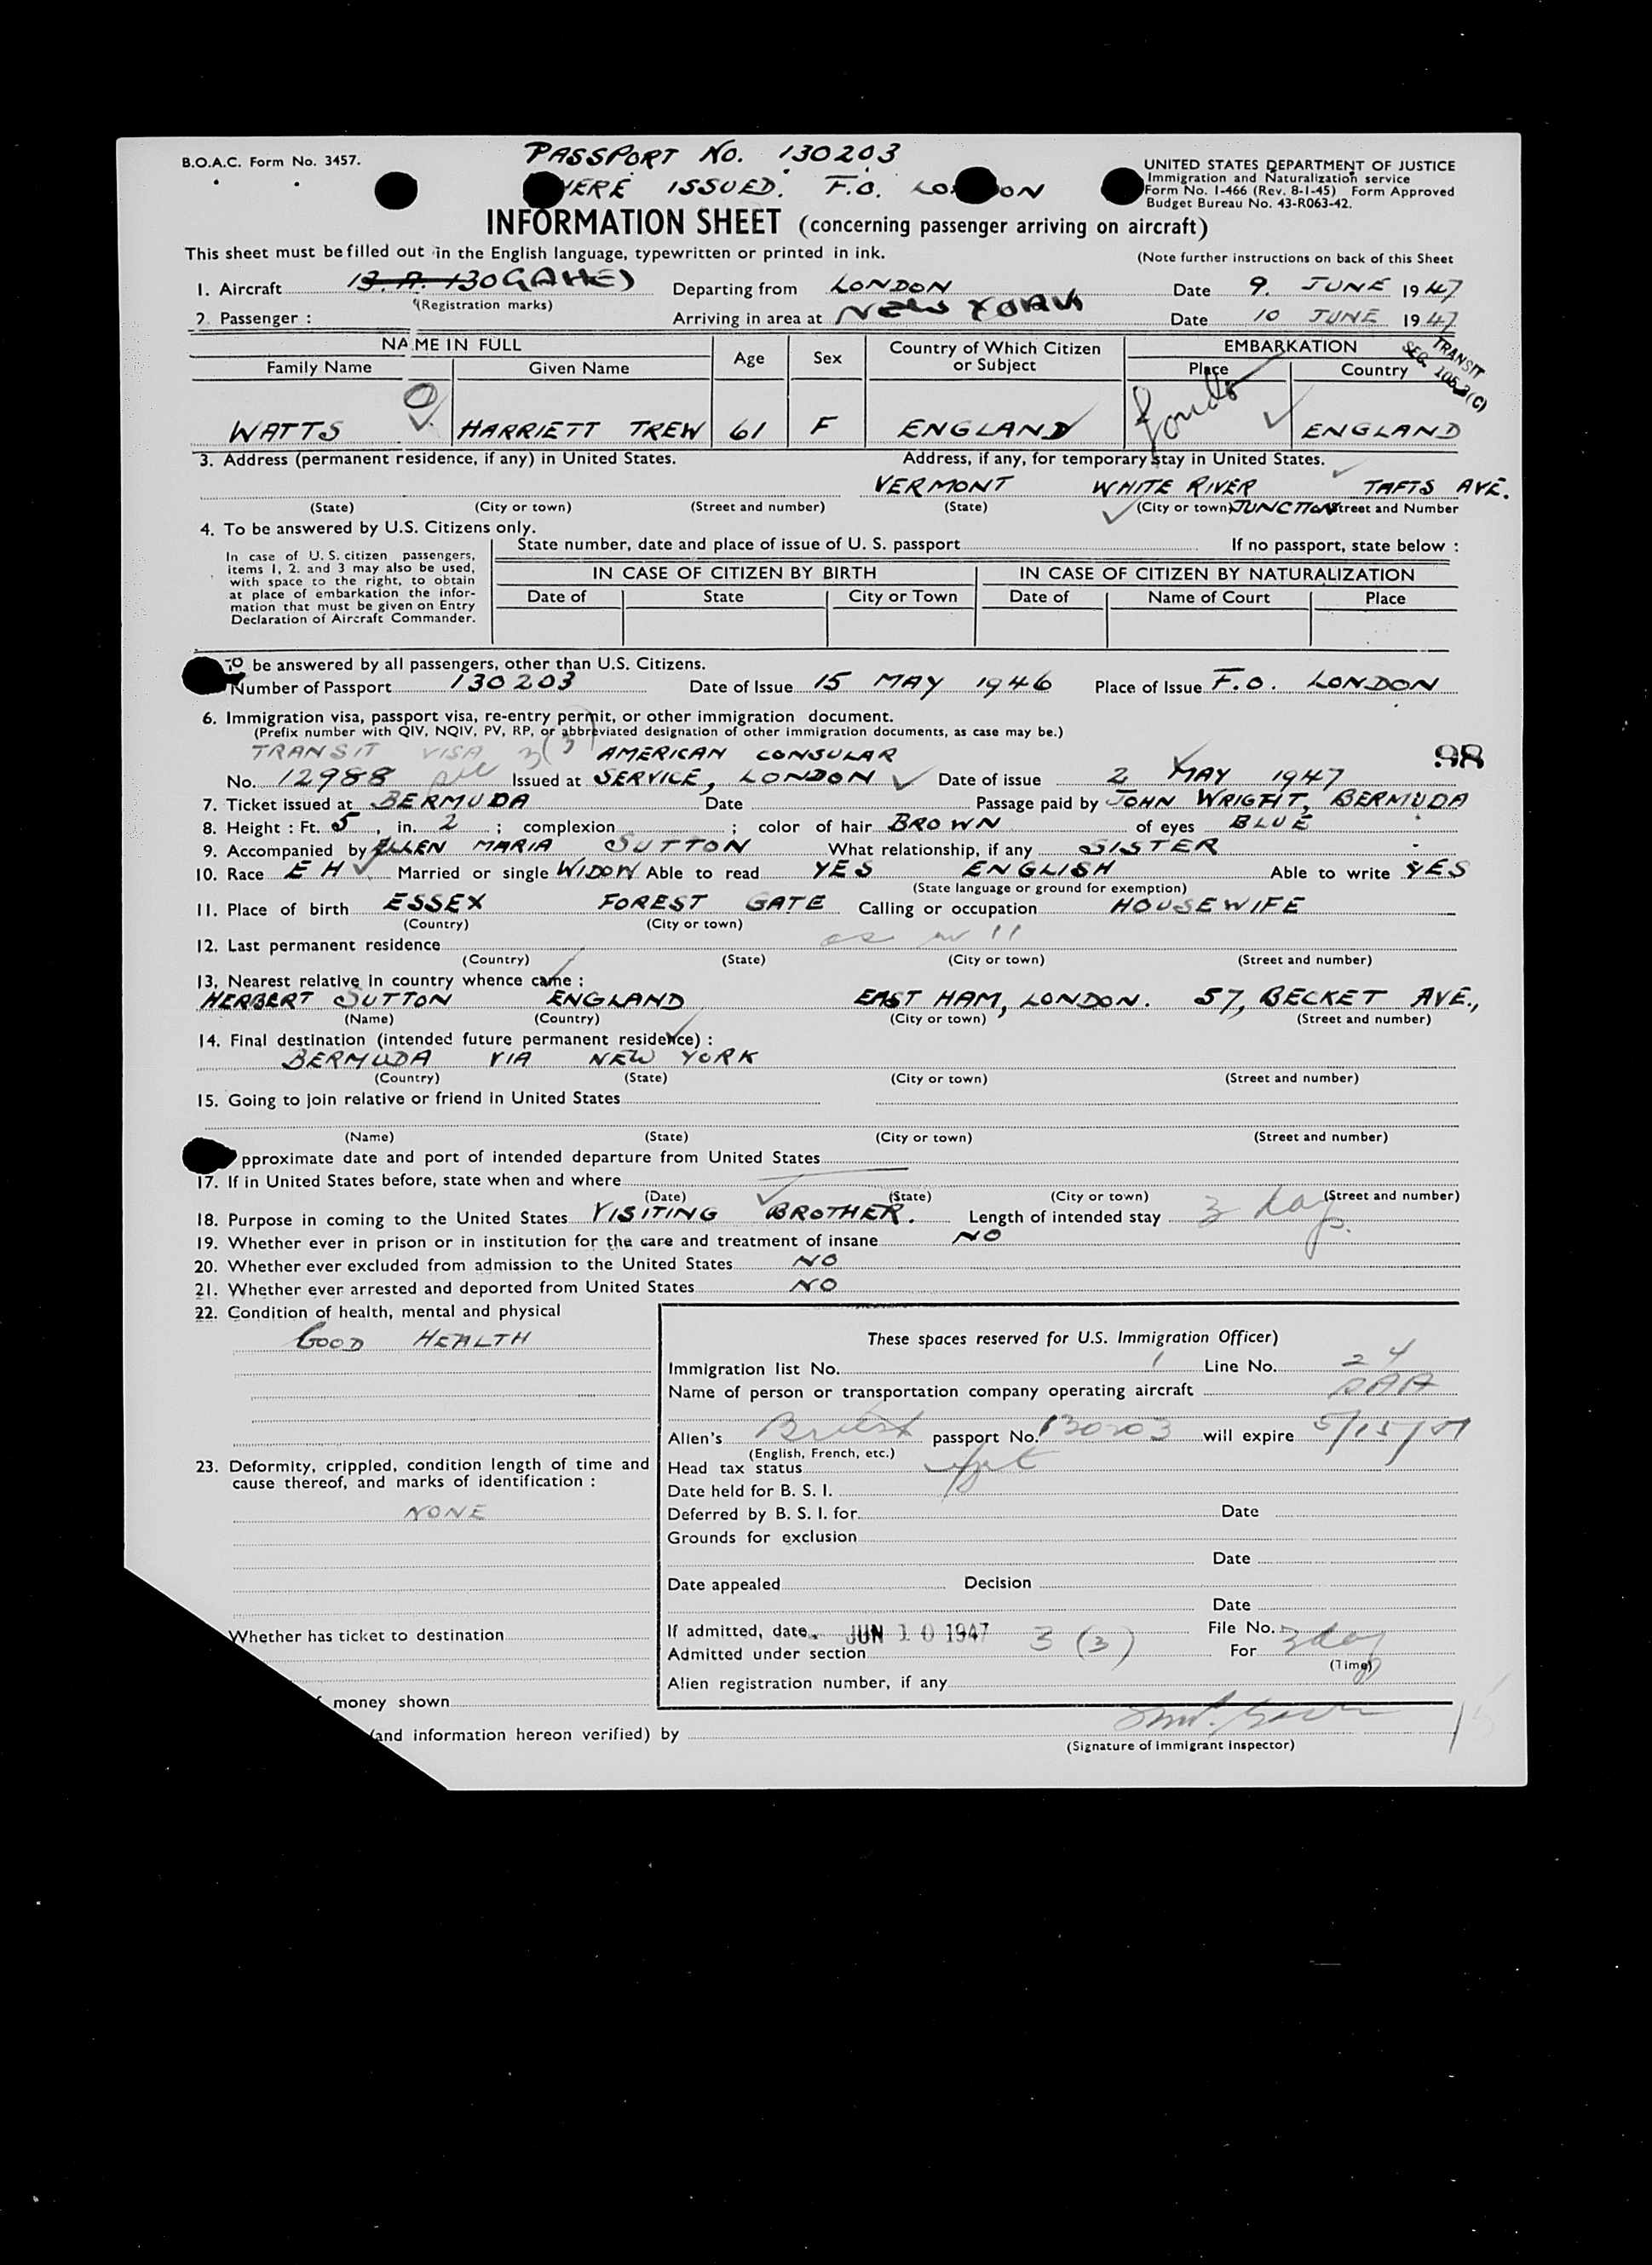 B.O.A.C. Form No. 3457.
PASSPORT NO. 130203
HERE ISSUED. F.O. LO ON
UNITED STATES DEPARTMENT OF JUSTICE
Immigration and Naturalization service
Form No. I-466 (Rev. 8-1-45) Form Approved
Budget Bureau No. 43-R063-42.
INFORMATION SHEET (concerning passenger arriving on aircraft)
This sheet must be filled out in the English language, typewritten or printed in ink.
(Note further instructions on back of this Sheet
1. Aircraft B.A. 130 GAHEJ Departing from LONDON Date 9. JUNE 1947
(Registration marks)
2. Passenger : Arriving in area at NEW YORK Date 10 JUNE 1947
TRANSIT
SEC 105.3(C)
NAME IN FULL Age Sex Country of Which Citizen or Subject EMBARKATION
Family Name Given Name Place Country
WATTS HARRIETT TREW 61 F ENGLAND London ENGLAND
3. Address (permanent residence, if any) in United States. Address, if any, for temporary stay in United States.
VERMONT WHITE RIVER TAFTS AVE.
(State) (City or town) (Street and number) (State) (City or town) JUNCTION Street and Number
4. To be answered by U.S. Citizens only.
In case of U.S. citizen passengers,
items 1, 2. and 3 may also be used,
with space to the right, to obtain
at place of embarkation the infor-
mation that must be given on Entry
Declaration of Aircraft Commander.
State number, date and place of issue of U. S. passport If no passport, state below :
IN CASE OF CITIZEN BY BIRTH IN CASE OF CITIZEN BY NATURALIZATION
Date of State City or Town Date of Name of Court Place
To be answered by all passengers, other than U.S. Citizens.
Number of Passport 130203 Date of Issue 15 MAY 1946 Place of Issue F.O. LONDON
6. Immigration visa, passport visa, re-entry permit, or other immigration document.
(Prefix number with QIV, NQIV, PV, RP, or abbreviated designation of other immigration documents, as case may be.)
TRANSIT VISA 3(3) AMERICAN CONSULAR 98
No. 12988 Issued at SERVICE, LONDON Date of issue 2 MAY 1947
7. Ticket issued at BERMUDA Date Passage paid by JOHN WRIGHT, BERMUDA
8. Height : Ft. 5, in. 2 ; complexion ; color of hair BROWN of eyes BLUE
9. Accompanied by ELLEN MARIA SUTTON What relationship, if any SISTER
10. Race E H Married or single WIDOW Able to read YES ENGLISH Able to write YES
(State language or ground for exemption)
11. Place of birth ESSEX FOREST GATE Calling or occupation HOUSEWIFE
(Country) (City or town)
12. Last permanent residence as in 11
(Country) (State) (City or town) (Street and number)
13. Nearest relative in country whence came :
HERBERT SUTTON ENGLAND EAST HAM, LONDON. 57, BECKET AVE.,
(Name) (Country) (City or town) (Street and number)
14. Final destination (intended future permanent residence) :
BERMUDA VIA NEW YORK
(Country) (State) (City or town) (Street and number)
15. Going to join relative or friend in United States
(Name) (State) (City or town) (Street and number)
pproximate date and port of intended departure from United States
17. If in United States before, state when and where
(Date) (State) (City or town) (Street and number)
18. Purpose in coming to the United States VISITING BROTHER. Length of intended stay 3 days.
19. Whether ever in prison or in institution for the care and treatment of insane NO
20. Whether ever excluded from admission to the United States NO
21. Whether ever arrested and deported from United States NO
22. Condition of health, mental and physical
GOOD HEALTH
23. Deformity, crippled, condition length of time and
cause thereof, and marks of identification :
NONE
Whether has ticket to destination
money shown
(and information hereon verified) by
These spaces reserved for U.S. Immigration Officer)
Immigration list No. 1 Line No. 24
Name of person or transportation company operating aircraft
Allen's British passport No. 130203 will expire 5/15/51
(English, French, etc.)
Head tax status
Date held for B. S. I.
Deferred by B. S. I. for Date
Grounds for exclusion
Date
Date appealed Decision
Date
If admitted, date JUN 10 1947 File No.
Admitted under section 3 (3) For 3 day
(Time)
Alien registration number, if any
(Signature of immigrant inspector)